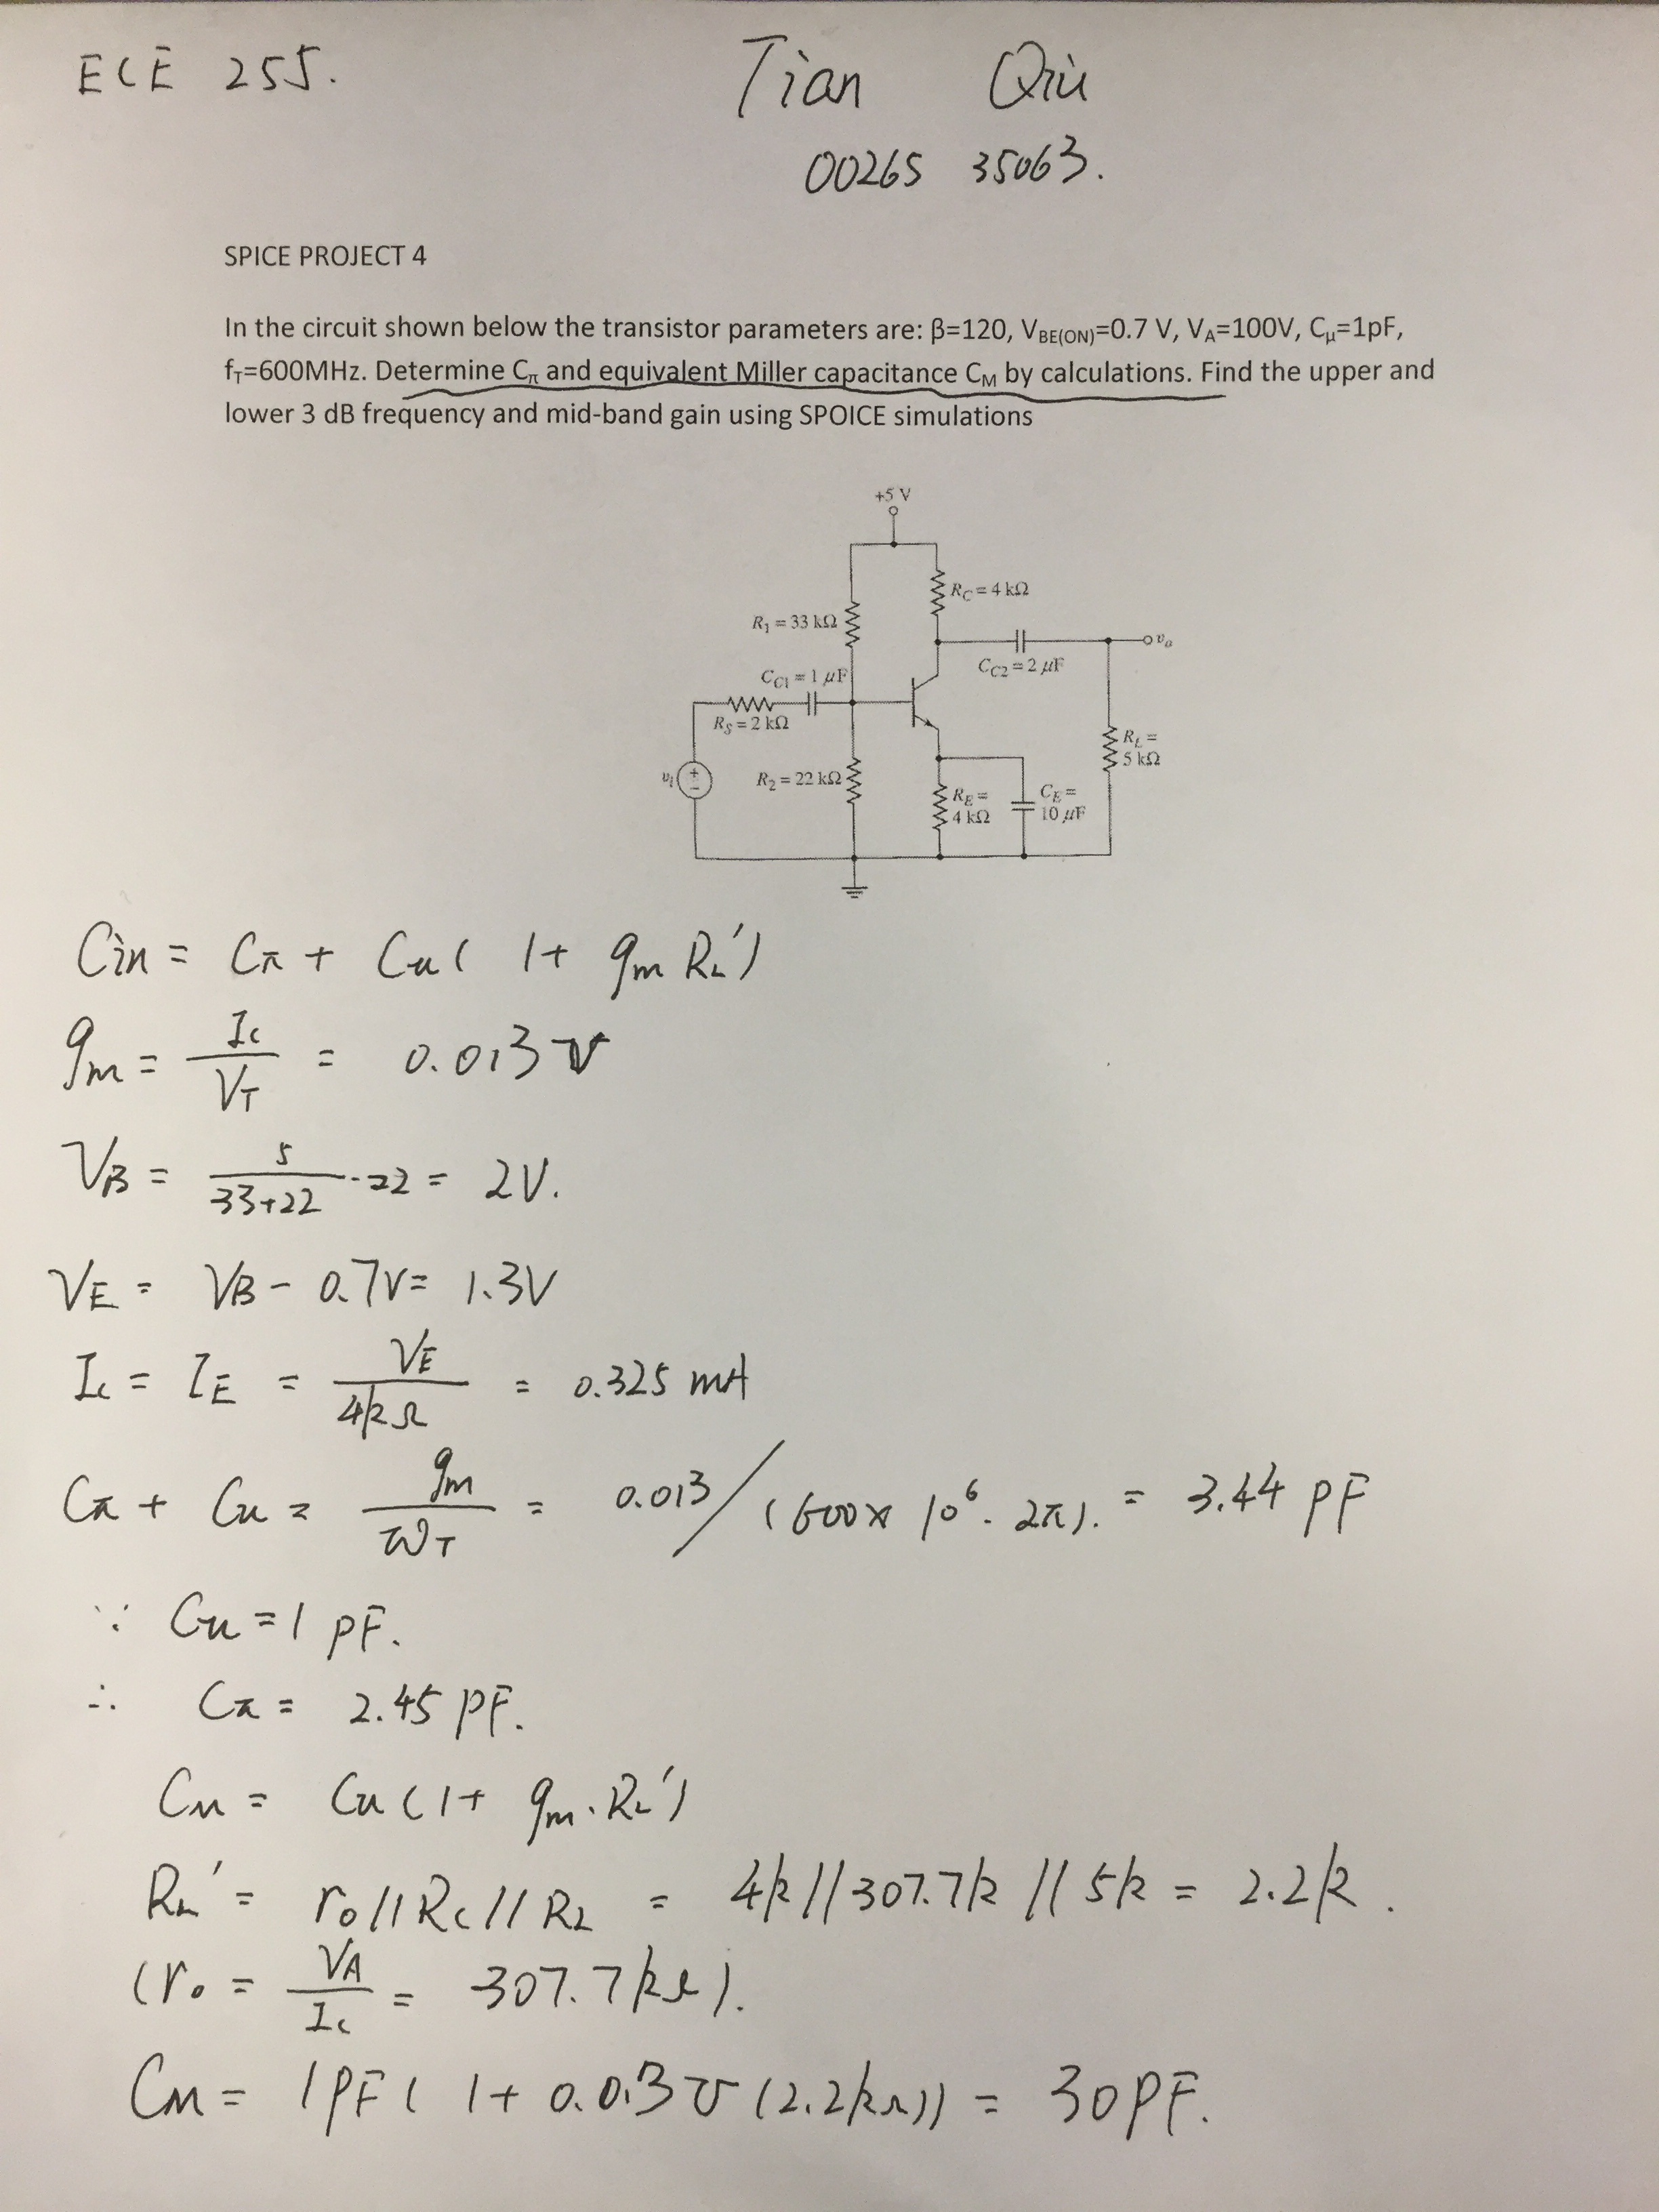 ECE 255. Tian Qiu
00265 35063.
SPICE PROJECT 4
In the circuit shown below the transistor parameters are: β=120, V_BE(ON)=0.7 V, V_A=100V, C_μ=1pF,
f_T=600MHz. Determine C_π and equivalent Miller capacitance C_M by calculations. Find the upper and
lower 3 dB frequency and mid-band gain using SPOICE simulations
+5 V
R_1 = 33 kΩ
R_C = 4 kΩ
C_C1 = 1 μF
C_C2 = 2 μF
v_o
R_S = 2 kΩ
v_i
R_2 = 22 kΩ
R_E =
4 kΩ
C_E =
10 μF
R_L =
5 kΩ
Cin = Cπ + Cu ( 1 + gm RL')
gm = Ic/VT = 0.013 ℧
VB = 5/(33+22) · 22 = 2V.
VE = VB - 0.7V = 1.3V
Ic = IE = VE/4kΩ = 0.325 mA
Cπ + Cu = gm/ωT = 0.013/(600 x 10^6 · 2π). = 3.44 pF
∵ Cu = 1 pF.
∴ Cπ = 2.45 pF.
Cm = Cu ( 1 + gm · RL')
RL' = ro // Rc // RL = 4k // 307.7k // 5k = 2.2k.
( ro = VA/Ic = 307.7kΩ ).
Cm = 1PF ( 1 + 0.013℧ (2.2kΩ)) = 30 PF.